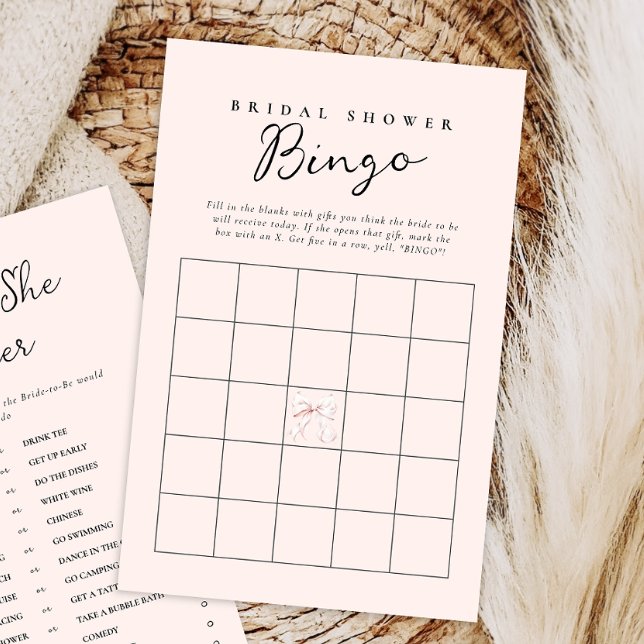 BRIDAL SHOWER
Bingo
Fill in the blanks with gifts you think the bride to be
will receive today. If she opens that gift, mark the
box with an X. Get five in a row, yell, "BINGO"!
She
the Bride-to-Be would
do
or DRINK TEE
or GET UP EARLY
or DO THE DISHES
or WHITE WINE
or CHINESE
or GO SWIMMING
or DANCE IN THE
or GO CAMPING
or GET A
or TAKE A BUBBLE BATH
or COMEDY